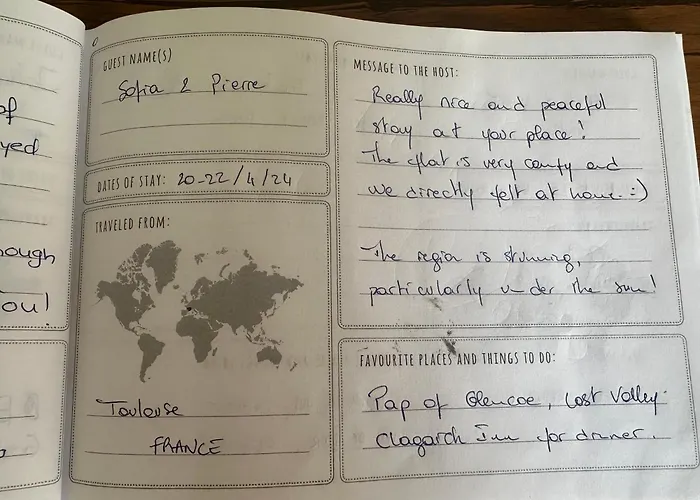 of
yed
ough
ou!
GUEST NAME(S)
Sofia & Pierre
DATES OF STAY: 20-22/4/24
TRAVELED FROM:
Toulouse
FRANCE
MESSAGE TO THE HOST:
Really nice and peaceful
stay at your place!
The flat is very comfy and
we directly felt at home :)
The region is stunning,
particularly under the sun!
FAVOURITE PLACES AND THINGS TO DO:
Pap of Glencoe, Lost Valley
Clagarch Inn for dinner.